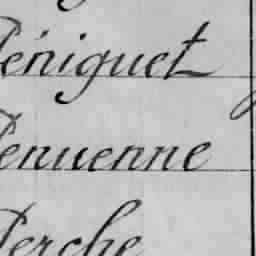 Péniguet
Penuenne
Perche